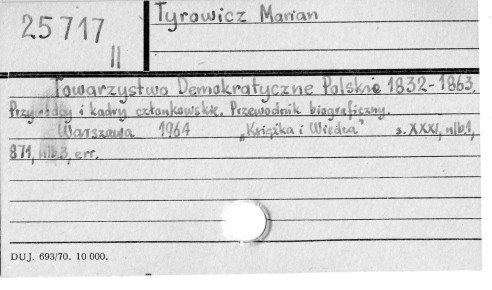 25717
II
Tyrowicz Marian
Towarzystwo Demokratyczne Polskie 1832-1863.
Przywódcy i kadry członkowskie. Przewodnik biograficzny.
Warszawa 1964 „Książka i Wiedza" s. XXXI, nlb.1,
871, nlb.3, err.
DUJ. 693/70. 10 000.